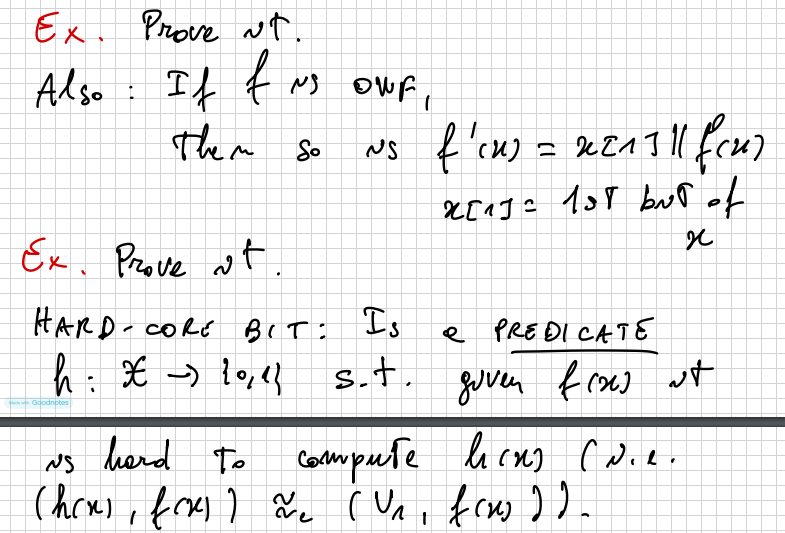 Ex. Prove it.
Also : If f is OWF,
Then so is f'(x) = x[1] || f(x)
x[1] = 1st bit of
x
Ex. Prove it.
HARD-CORE BIT: Is a PREDICATE
h : X → {0,1} s.t. given f(x) it
Made with Goodnotes
is hard to compute h(x) (i.e.
(h(x), f(x)) ≈c (U1, f(x))).